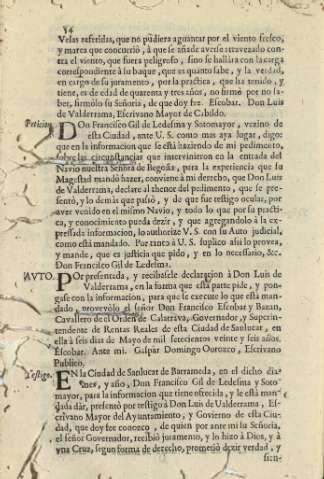 54
Velas referidas, que no pudiera aguantar por el viento fresco,
y marea que concurriò, à que se añade averse atravezado con-
tra el viento, que fuera peligroso, sino se hallàra con la carga
correspondiente à su buque, que es quanto sabe, y la verdad,
en cargo de su juramento, por la practica, que ha tenido, y
tiene, es de edad de quarenta y tres años, no firmò por no sa-
ber, firmòlo su Señoria, de que doy fee. Escobar. Don Luis
de Valderrama, Escrivano Mayor de Cabildo.
Peticion.
DOn Francisco Gil de Ledesma y Sotomayor, vezino de
esta Ciudad, ante U.S. como mas aya lugar, digo:
que en la informacion que se està haziendo de mi pedimento,
sobre las circunstancias que intervinieron en la entrada del
Navio nuestra Señora de Begoña, para la experiencia que su
Magestad mandò hazer, conviene à mi derecho, que Don Luis
de Valderrama, declare al thenor del pedimento, que se pre-
sentò, y lo demàs que passò, y de que fue testigo ocular, por
aver venido en el mismo Navio, y todo lo que por su practi-
ca, y conocimiento pueda dezir, y que agregandolo à la ex-
pressada informacion, lo authorize V.S. con su Auto judicial,
como està mandado. Por tanto à U.S. suplico assi lo provea,
y mande, que es justicia que pido, y en lo necessario, &c.
Don Francisco Gil de Ledesma.
AUTO.
POr presentada, y recibasele declaracion à Don Luis de
Valderrama, en la forma que esta parte pide, y pon-
gase con la informacion, para que se execute lo que està man-
dado, proveyòlo el señor Don Francisco Escobar y Bazan,
Cavallero de el Orden de Calatrava, Governador, y Superin-
tendente de Rentas Reales de esta Ciudad de Sanlucar, en
ella à seis dias de Mayo de mil setecientos veinte y seis años.
Escobar. Ante mi. Gaspar Domingo Orozco, Escrivano
Publico.
Testigo.
EN la Ciudad de Sanlucar de Barrameda, en el dicho dia
mes, y año, Don Francisco Gil de Ledesma y Soto
mayor, para la informacion que tiene ofrecida, y le està man-
dada dàr, presentò por testigo à Don Luis de Valderrama, Es-
crivano Mayor del Ayuntamiento, y Governo de esta Ciu-
dad, que doy fee conozco, de quien por ante mi su Señoria,
el señor Governador, recibiò juramento, y lo hizo à Dios, y à
una Cruz, segun forma de derecho, prometiò dezir verdad, y